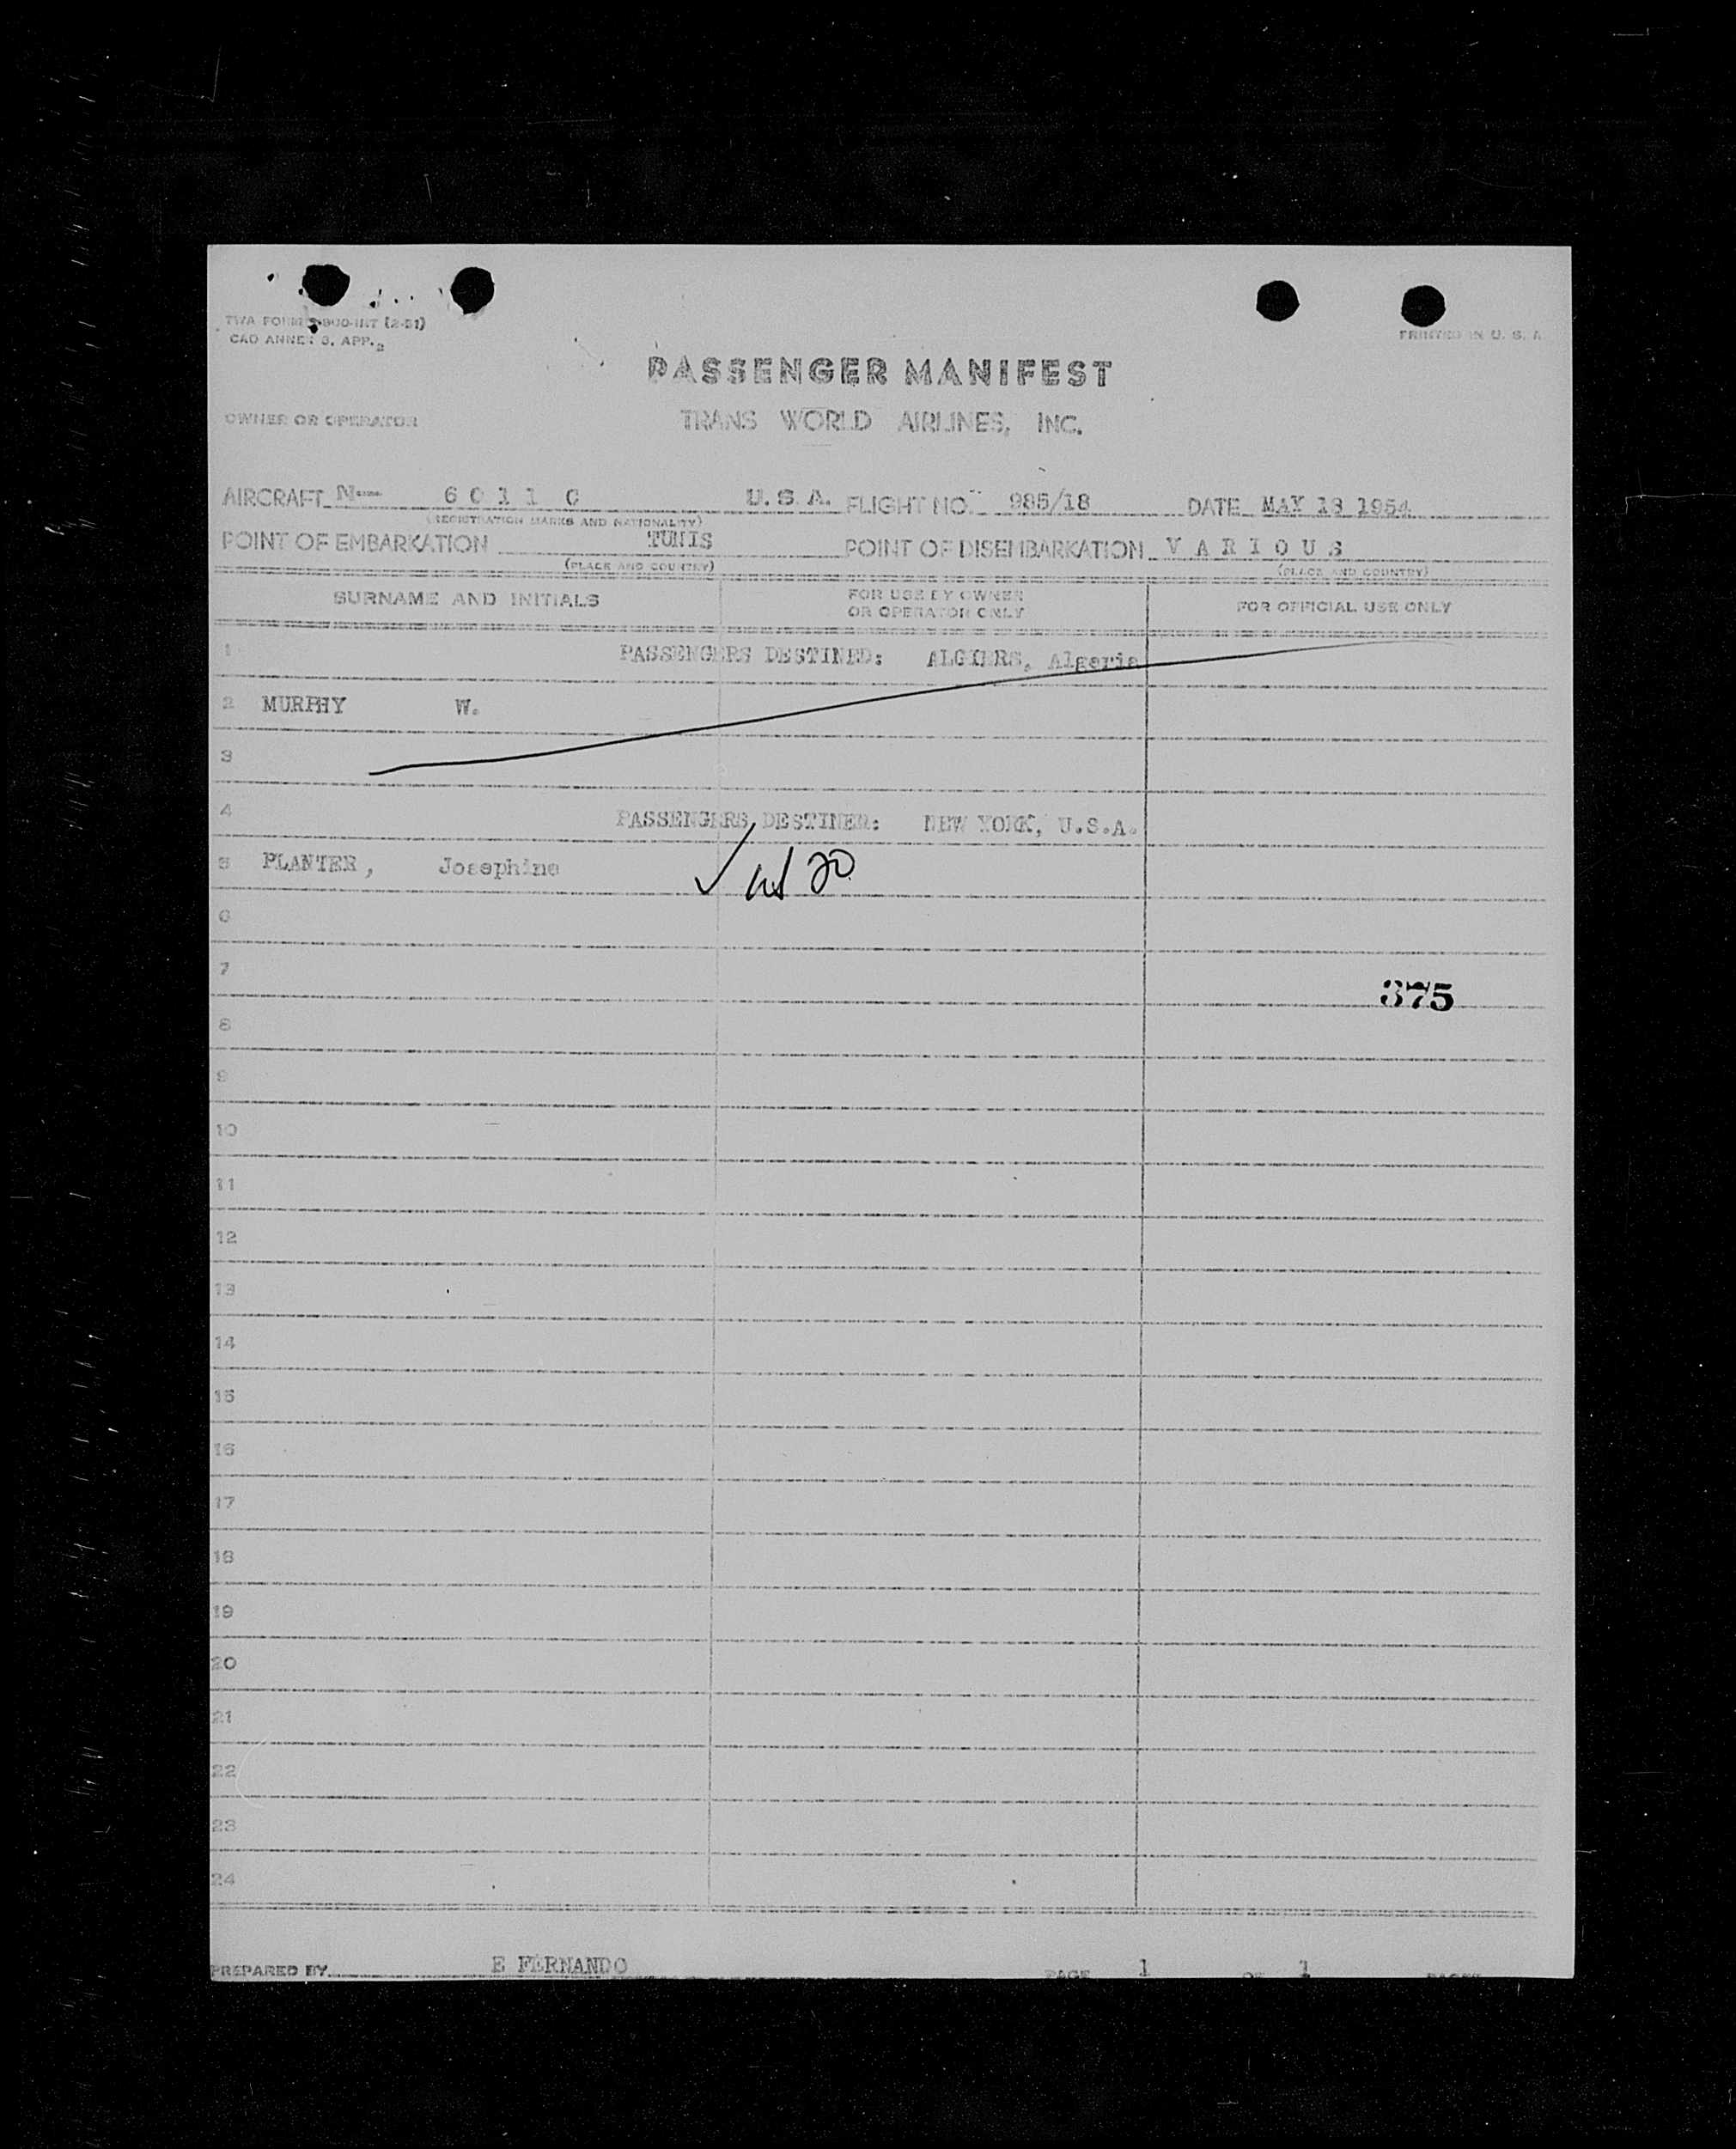 TWA FORM
PRINTED IN U. S. A
CAO ANNEX 9, APP. 2
PASSENGER MANIFEST
OWNER OR OPERATOR TRANS WORLD AIRLINES, INC.
AIRCRAFT N--- 6 0 1 1 C U. S. A. FLIGHT NO. 985/18 DATE MAY 18 1954
(REGISTRATION MARKS AND NATIONALITY)
POINT OF EMBARKATION TUNIS POINT OF DISEMBARKATION V A R I O U S
(PLACE AND COUNTRY) (PLACE AND COUNTRY)
SURNAME AND INITIALS FOR USE BY OWNER OR OPERATOR ONLY FOR OFFICIAL USE ONLY
1 PASSENGERS DESTINED: ALGIERS, Algeria
2 MURPHY W.
3
4 PASSENGERS DESTINED: NEW YORK, U.S.A.
5 PLANTER, Josephine ✓ 20
6
7
375
8
9
10
11
12
13
14
15
16
17
18
19
20
21
22
23
24
PREPARED BY E FERNANDO PAGE 1 OF 1 PAGES